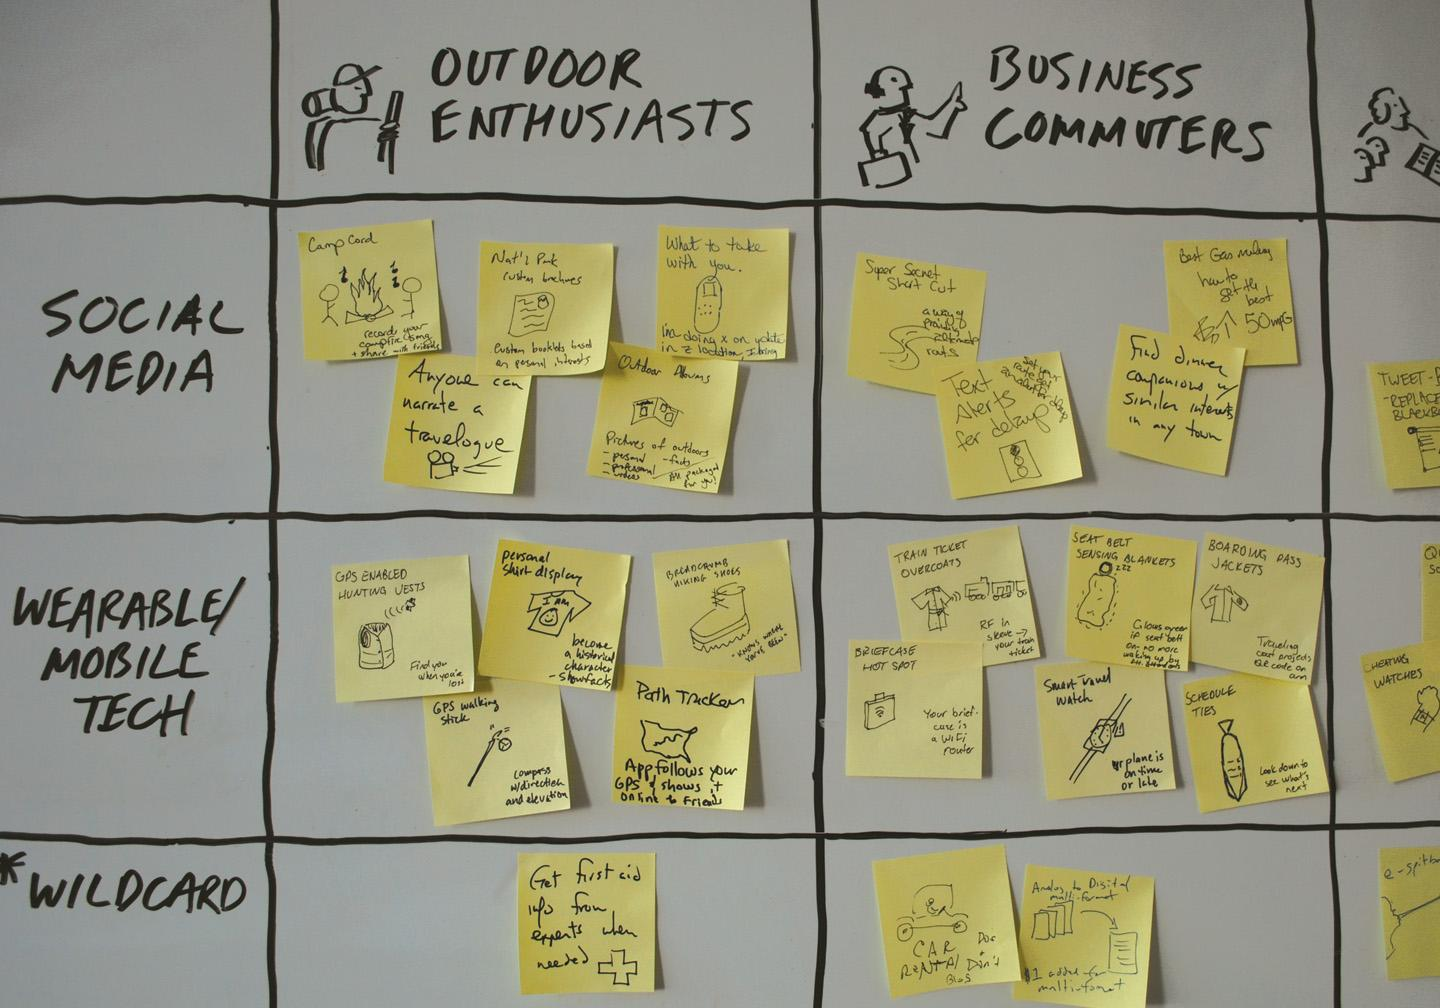 OUTDOOR
ENTHUSIASTS
BUSINESS
COMMUTERS
SOCIAL
MEDIA
Camp Cord
record your
campfire song
+ share with friends
Nat'l Park
custom brochures
Custom booklets based
on personal interests
What to take
with you.
I'm doing x on
in z location, I bring
Anyone can
narrate a
travelogue
Outdoor Albums
Pictures of outdoors
- personal
- facts
- professional
- videos
All packaged
for you!
Super Secret
Short Cut
a way of
routs
Text
Alerts
for delays
Set your
Best Gas
how to
get the
best
50mpg
Find dinner
companions w/
similar interests
in any town
TWEET-B
-REPLACE
BLACKB
WEARABLE/
MOBILE
TECH
GPS ENABLED
HUNTING VESTS
Find you
when you're
lost
personal
shirt display
I AM
become
a historical
character
- show facts
BREADCRUMB
HIKING SHOES
- KNOWS WHERE
YOU'VE BEEN -
GPS walking
stick
compass
w/direction
and elevation
Path Tracker
App follows your
GPS & shows it
online to friends
TRAIN TICKET
OVERCOATS
RF in
sleeve →
your train
ticket
SEAT BELT
SENSING BLANKETS
zzz
Glows green
if seat belt
on - no more
waking up by
BOARDING PASS
JACKETS
Traveling
coat projects
QR code on
arm
BRIEFCASE
HOT SPOT
Your brief-
case is
a WiFi
router
Smart Travel
Watch
plane is
on time
or late
SCHEDULE
TIES
Look down to
see what's
next
CHEATING
WATCHES
*WILDCARD
Get first aid
info from
experts when
needed
CAR
RENTAL
Analog to Digital
multi-format
$1 added for
multi-format
e-spitb